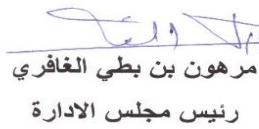 مرهون بن بطي الغافري
رئيس مجلس الادارة